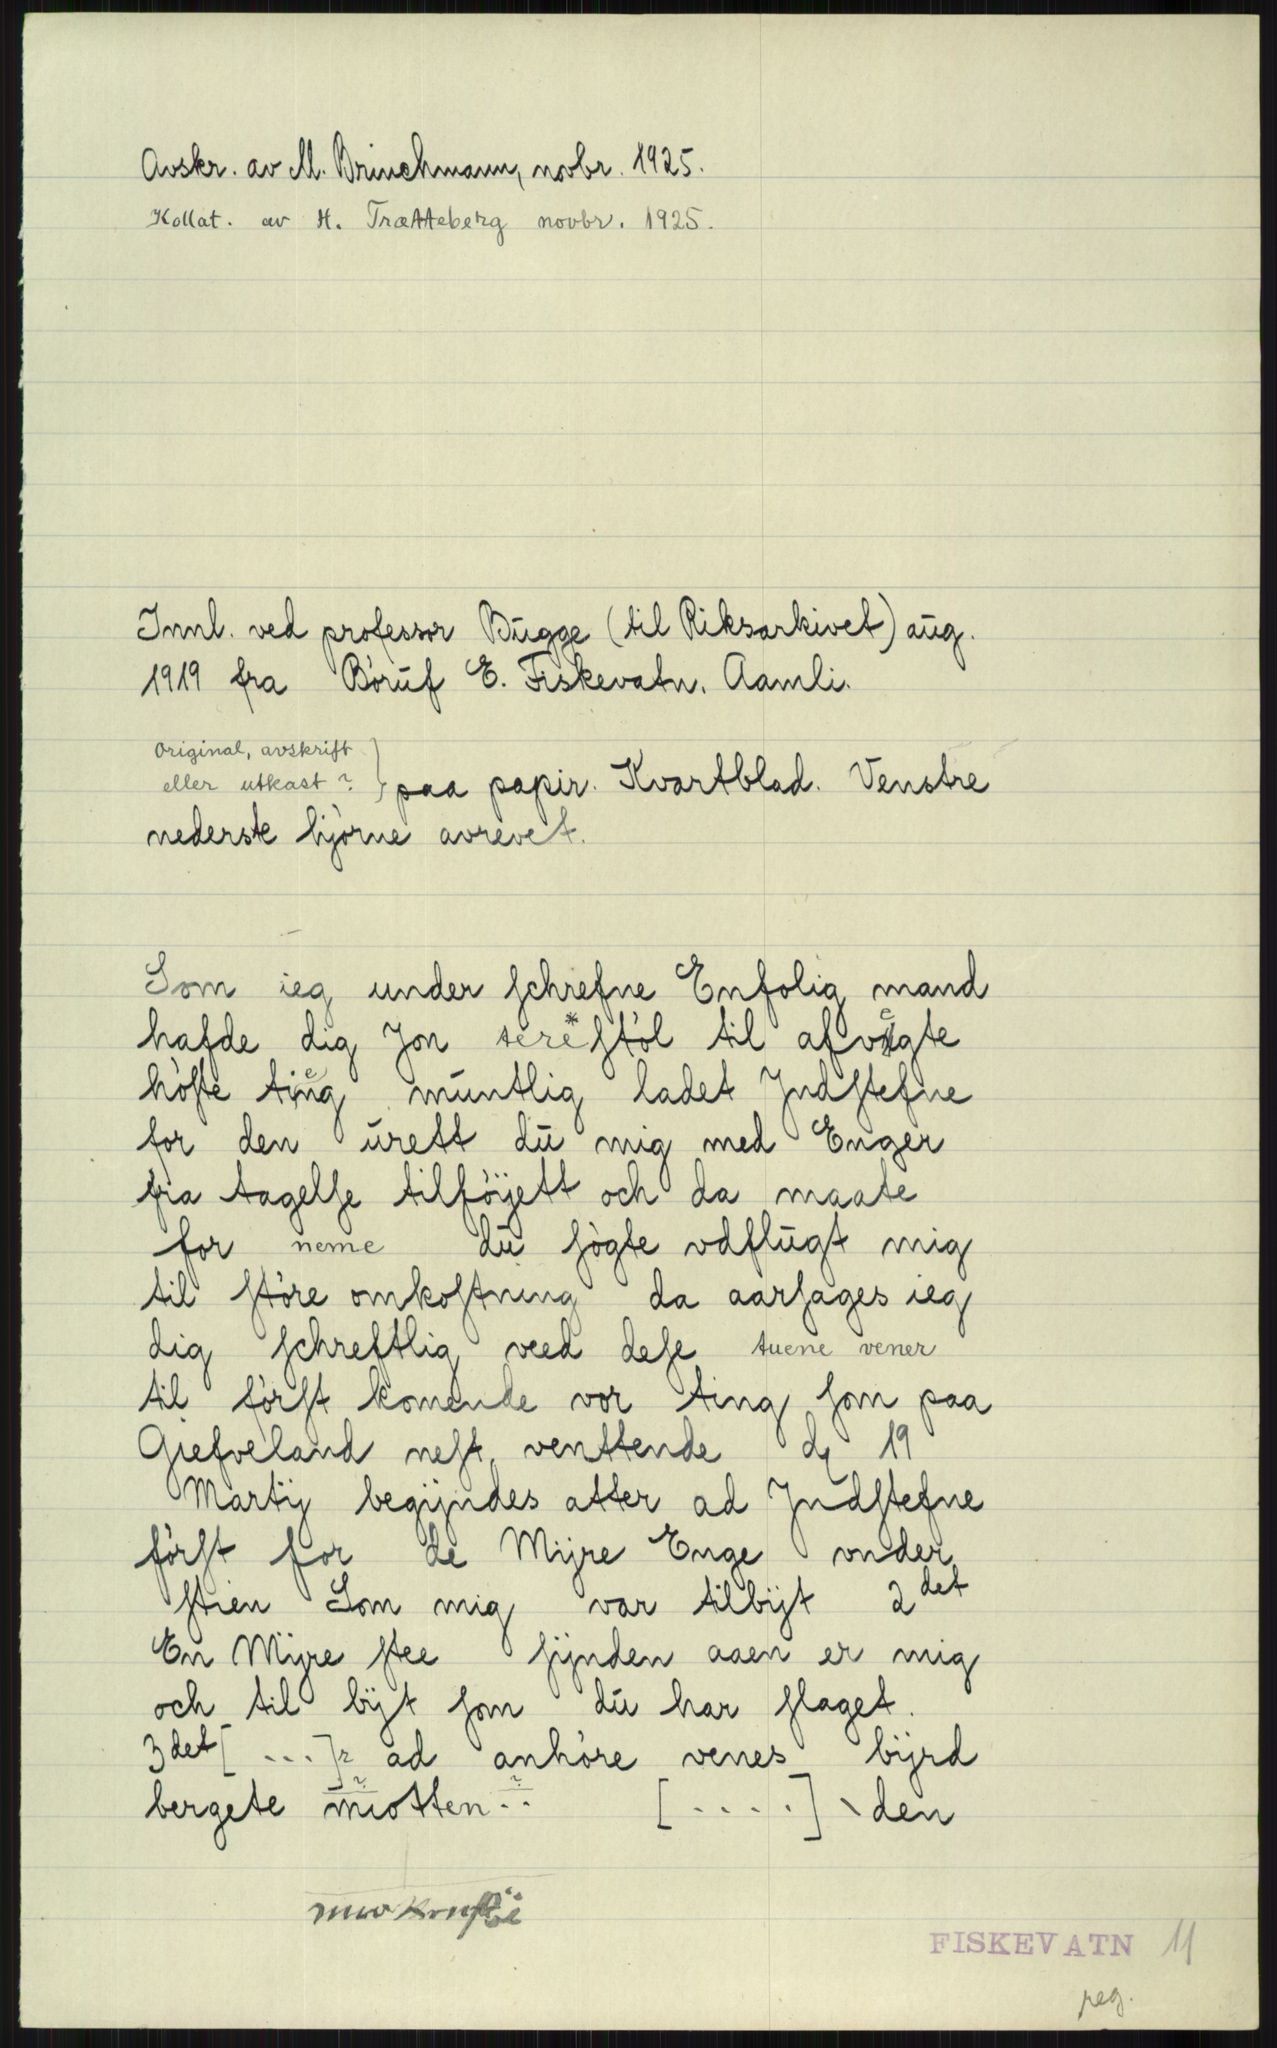 Avskr. av M. Brinchmann, novbr. 1925.
Kollat. av H. Trætteberg novbr. 1925.
Innl. ved professor Bugge (til Riksarkivet) aug.
1919 fra Böruf E. Fiskevatn. Aamli.
Original, avskrift
eller utkast ? } paa papir. Kvartblad. Venstre
nederste hjörne avrevet.
Som ieg under ſchrefne Enfolig mand
hafde dig Jon sere*ſtöl til afvegte
höſte ting muntlig ladet Jndſtefne
for den urett du mig med Enger
fra tagelſe tilföÿett och da maate
for neme du ſögte vdflugt mig
til ſtöre omkoſtning da aarſages ieg
dig ſchreftlig veed deſe tuene vener
til förſt komende vor ting ſom paa
Giefveland neſt venttende dꝫ 19
Martÿ begÿndes atter ad Jndſtefne
förſt for de Mÿre Enge vnder
ſtien Som mig var tilbÿt 2det
En Mÿre ſtee ſÿnden aaen er mig
och til bÿt ſom du har ſlaget.
3det [ ... ]? ad anhöre venes bÿrd
bergete miotten ? .. [ ..... ] den
FISKEVATN 11
peg.